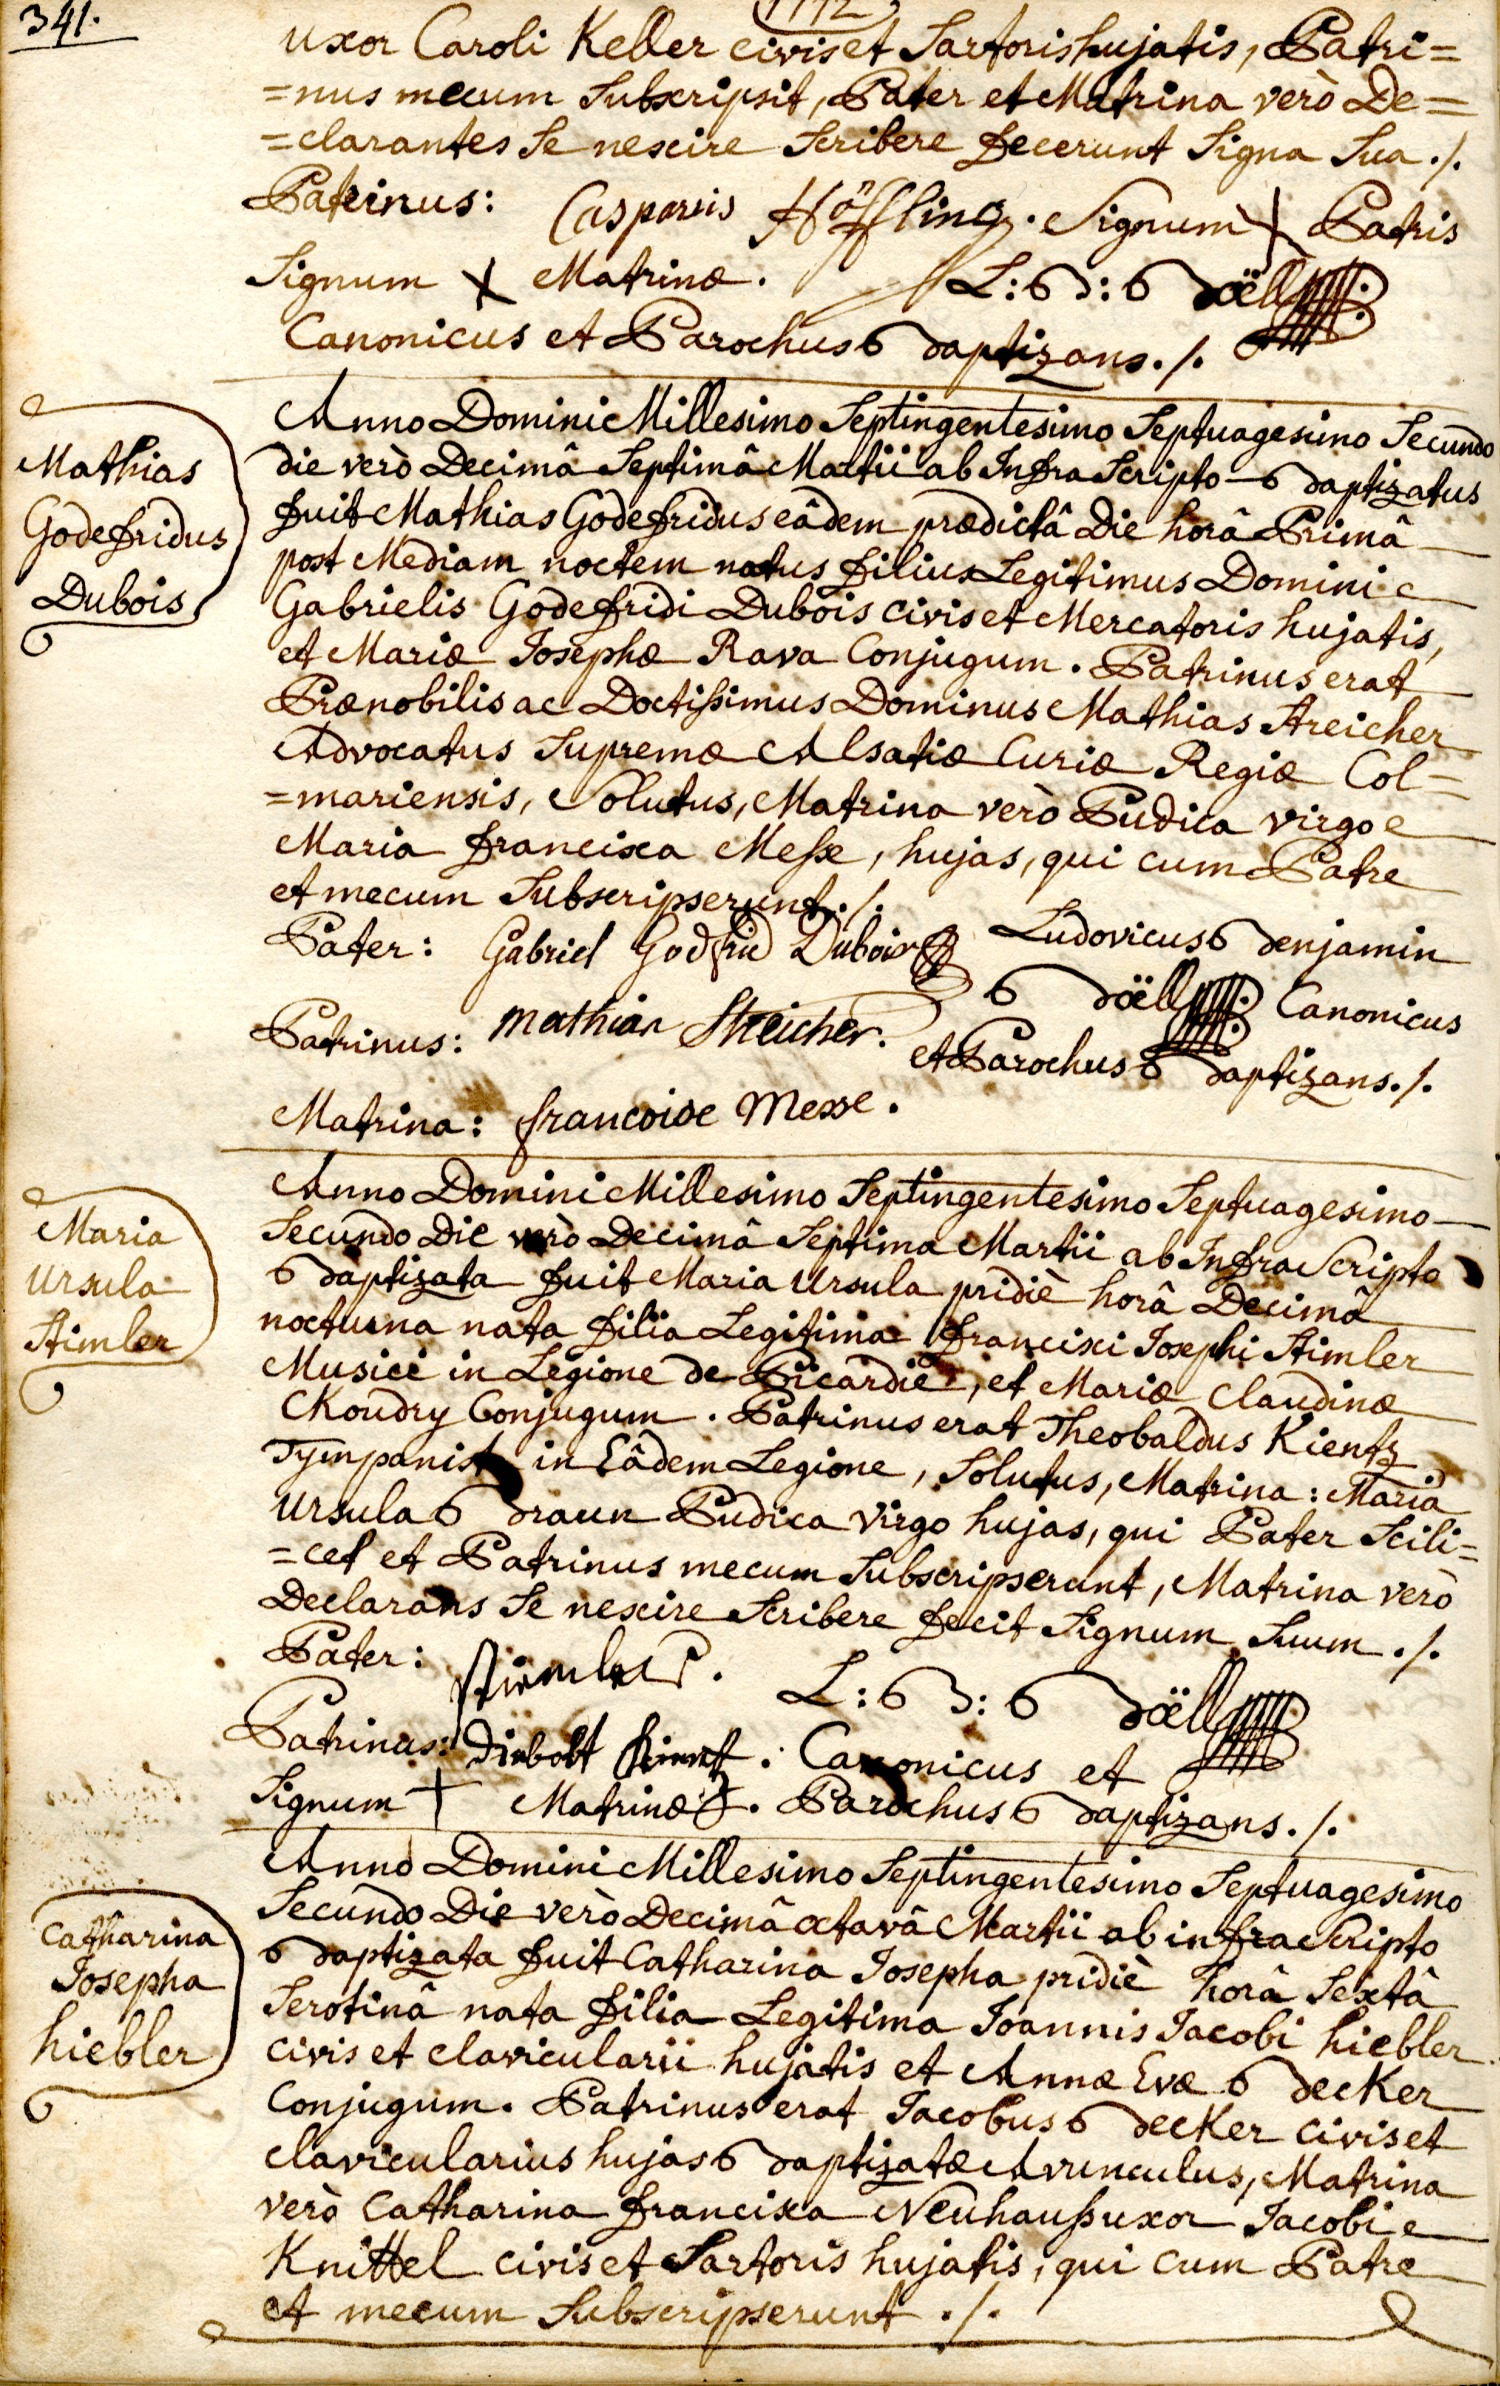 341.
1772
uxor Caroli Keller civis et Sartoris hujatis, Patri=
=nus mecum Subscripsit, Pater et Matrina verò De=
=clarantes Se nescire Scribere fecerunt Signa Sua ./.
Patrinus: Casparus Höffling. Signum X Patris
Signum X Matrinæ. L: B: Boëll
Canonicus et Parochus Baptizans ./.
Mathias
Godefridus
Dubois
Anno Domini Millesimo Septingentesimo Septuagesimo Secundo
die verò Decimâ Septimâ Martii ab Infra Scripto Baptizatus
fuit Mathias Godefridus eâdem prædictâ Die horâ Primâ
post Mediam noctem natus filius Legitimus Domini
Gabrielis Godefridi Dubois civis et Mercatoris hujatis,
et Mariæ Josephæ Rava Conjugum. Patrinus erat
Prænobilis ac Doctissimus Dominus Mathias Streicher
Advocatus Supremæ Alsatiæ Curiæ Regiæ Col=
=mariensis, Solutus, Matrina verò Pudica virgo
Maria francisca Messe, hujas, qui cum Patre
et mecum Subscripserunt ./.
Pater: Gabriel Godfrid Dubois Ludovicus Benjamin
Boëll Canonicus
Patrinus: Mathias Streicher. et Parochus Baptizans ./.
Matrina: francoise Messe.
Maria
Ursula
Stimler
Anno Domini Millesimo Septingentesimo Septuagesimo
Secundo Die verò Decimâ Septima Martii ab Infra Scripto
Baptizata fuit Maria Ursula pridiè horâ Decimâ
nocturna nata filia Legitima francisci Josephi Stimler
Musici in Legione de Picardie, et Mariæ Claudinæ
Koudry Conjugum. Patrinus erat Theobaldus Kientz
Tympanist in Eâdem Legione, Solutus, Matrina: Maria
Ursula Braun Pudica Virgo hujas, qui Pater Scili=
=cet et Patrinus mecum Subscripserunt, Matrina verò
Declarans Se nescire Scribere fecit Signum Suum ./.
Pater: Stimler. L: B: Boëll
Patrinus: Diebolt Kientz. Canonicus et
Signum + Matrinæ. Parochus Baptizans ./.
Catharina
Josepha
hiebler
Anno Domini Millesimo Septingentesimo Septuagesimo
Secundo Die verò Decimâ octavâ Martii ab infra Scripto
Baptizata fuit Catharina Josepha pridiè horâ Sextâ
Serotinâ nata filia Legitima Joannis Jacobi hiebler
civis et clavicularii hujatis et Annæ Evæ Becker
Conjugum. Patrinus erat Jacobus Becker civis et
clavicularius hujas Baptizatæ Avunculus, Matrina
verò Catharina francisca Neuhauss uxor Jacobi
Knittel civis et Sartoris hujatis, qui cum Patre
et mecum Subscripserunt ./.